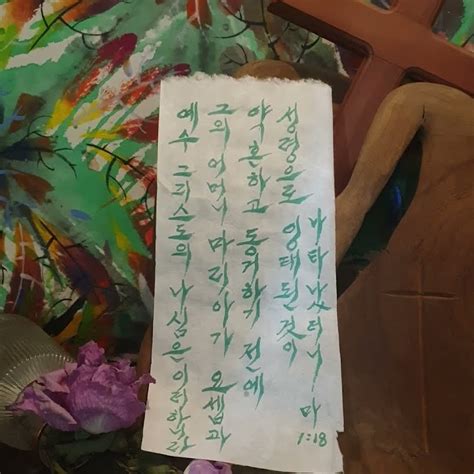 예수 그리스도의 나심은 이러하니라
그의 어머니 마리아가 요셉과
약혼하고 동거하기 전에
성령으로 잉태된 것이
나타났더니 마
1:18